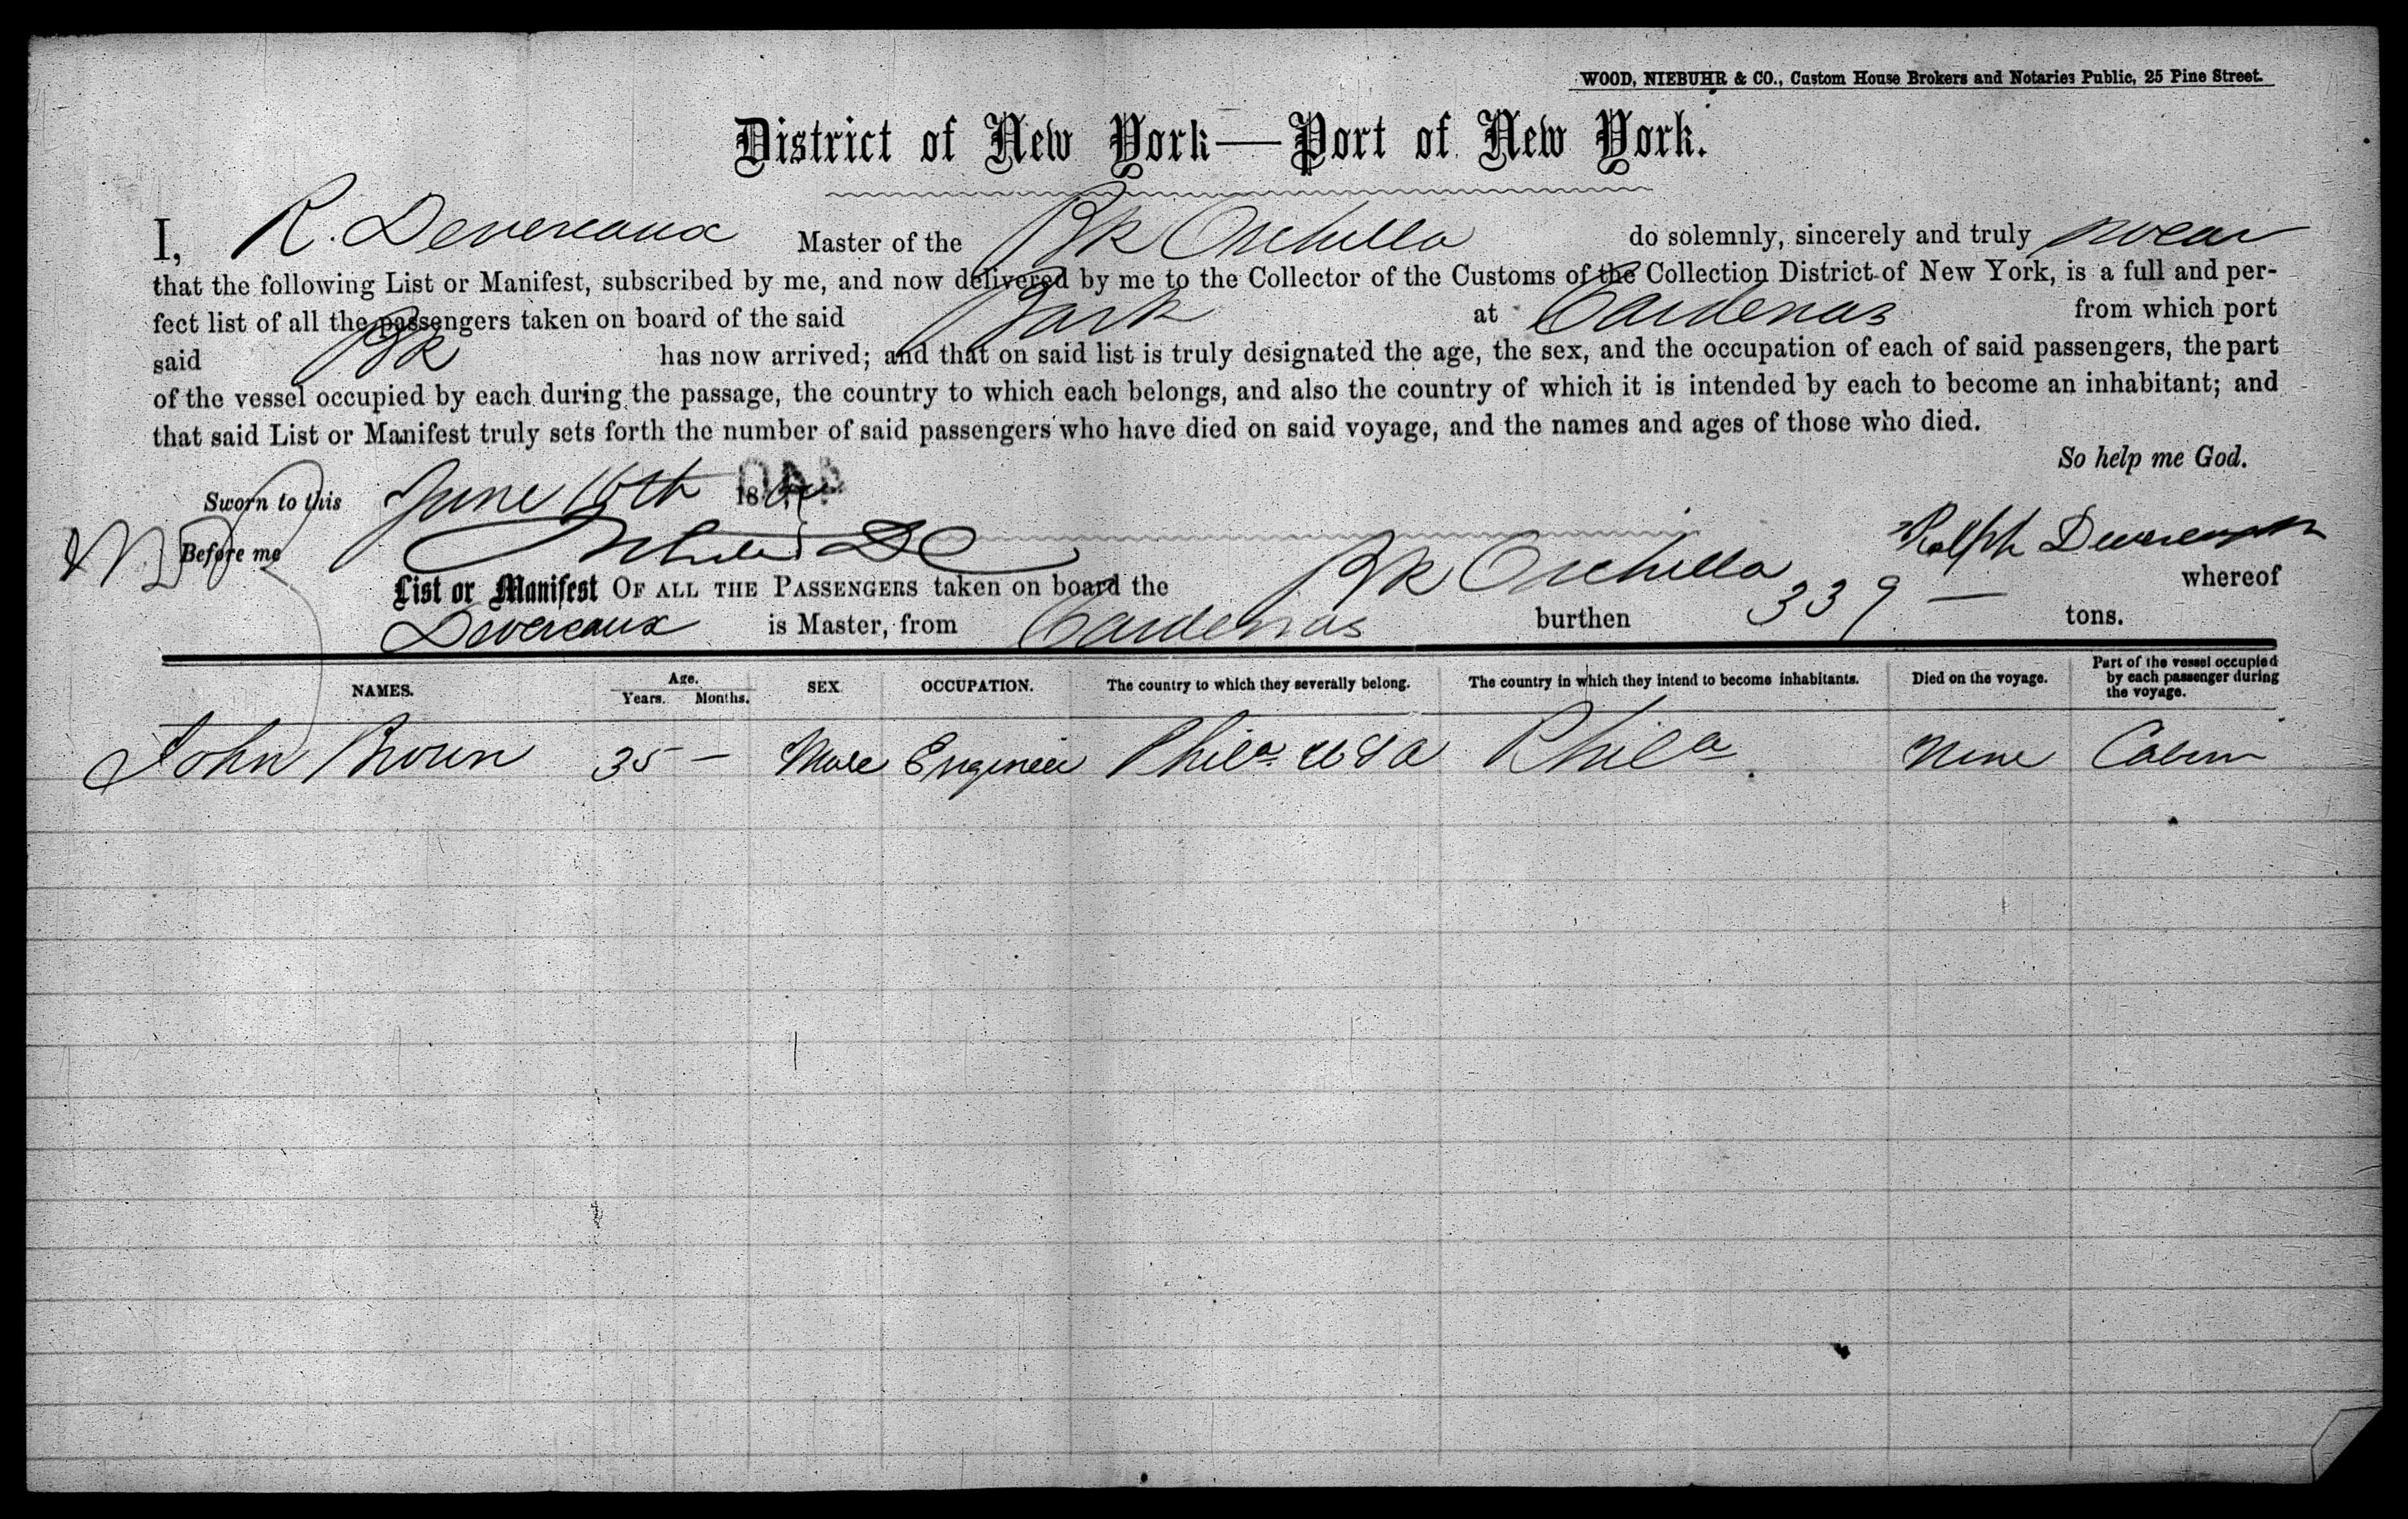 WOOD, NIEBUHR & CO., Custom House Brokers and Notaries Public, 25 Pine Street.
District of New York—Port of New York.
I, R. Devereaux Master of the Bk Orchilla do solemnly, sincerely and truly swear
that the following List or Manifest, subscribed by me, and now delivered by me to the Collector of the Customs of the Collection District of New York, is a full and per-
fect list of all the passengers taken on board of the said Bark at Cardenas from which port
said Bk has now arrived; and that on said list is truly designated the age, the sex, and the occupation of each of said passengers, the part
of the vessel occupied by each during the passage, the country to which each belongs, and also the country of which it is intended by each to become an inhabitant; and
that said List or Manifest truly sets forth the number of said passengers who have died on said voyage, and the names and ages of those who died.
So help me God.
Sworn to this June 18
Before me Ralph Devereaux
List or Manifest OF ALL THE PASSENGERS taken on board the Bk Orchilla whereof
Devereaux is Master, from Cardenas burthen 339 — tons.
NAMES. Age. Years. Months. SEX OCCUPATION. The country to which they severally belong. The country in which they intend to become inhabitants. Died on the voyage. Part of the vessel occupied by each passenger during the voyage.
John Brown 35 — Male Engineer Phila. USA Phila. None Cabin